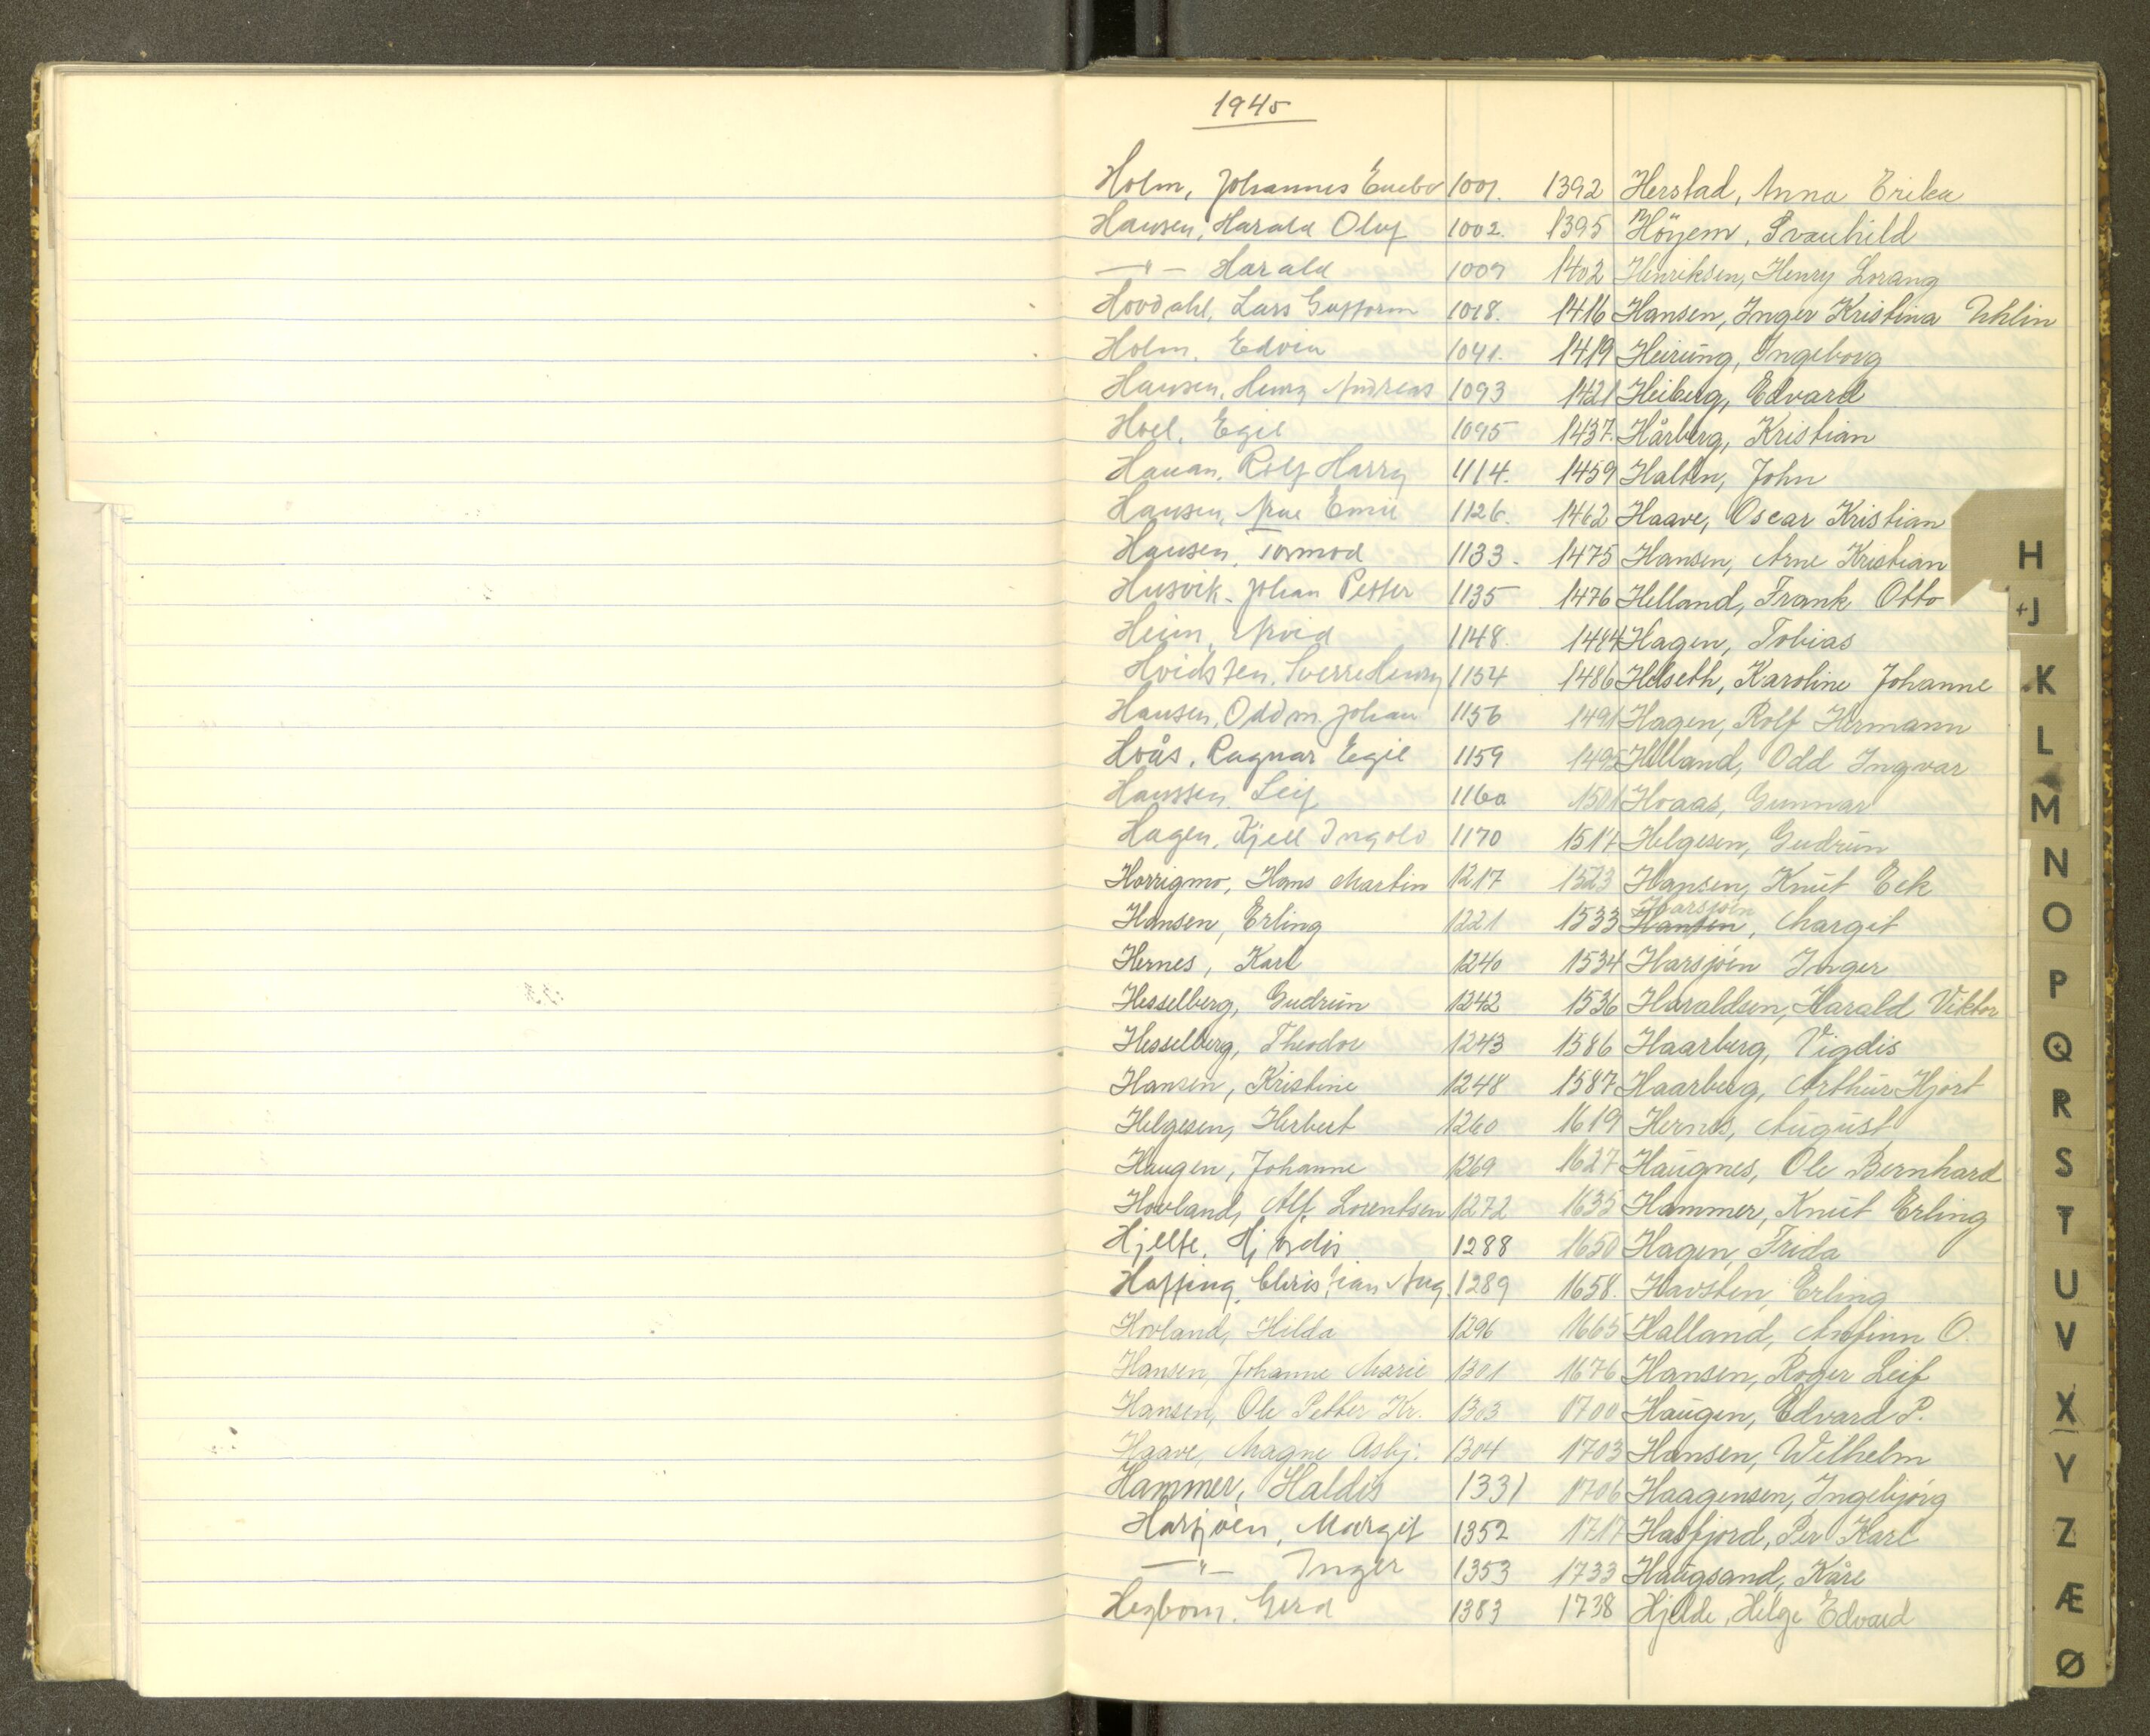 1945
Holm, Johannes 1001. 1392 Herstad, Anna Erika
Hansen, Harald Oluf 1002. 1395 Höyem, Svanhild
—"— Harald 1007 1402 Henriksen, Henry Lorang
Hovdahl, Lars Guttorm 1018. 1416 Hansen, Inger Kristina Uhlin
Holm, Edvin 1041. 1419 Heirung, Ingeborg
Hansen, Henry Andreas 1093 1421 Heiberg, Edvard
Hoel, Egil 1095 1437. Hårberg, Kristian
Hauan, Rolf Harry 1114. 1459 Halten, John
Hansen, Arne Emil 1126. 1462 Haave, Oscar Kristian
Hansen, Tormod 1133. 1475 Hansen, Arne Kristian
Husvik, Johan Petter 1135 1476 Helland, Frank Otto
Heim, Arvid 1148. 1484 Hagen, Tobias
Hvidsten, Sverre Henry 1154 1486 Helseth, Karoline Johanne
Hansen, Oddm. Johan 1156 1491 Hagen, Rolf Hermann
Hoås, Ragnar Egil 1159 1495 Helland, Odd Ingvar
Hanssen, Leif 1160 1501 Hoaas, Gunnar
Hagen, Kjell Ingolv 1170 1517 Helgesen, Gudrun
Horrigmo, Hans Martin 1217 1523 Hansen, Knut Eek
Harsjøen
Hansen, Erling 1221 1533 Hansen, Margit
Hernes, Karl 1240 1534 Harsjøen Inger
Hesselberg, Gudrun 1242 1536 Haraldsen, Harald Viktor
Hesselberg, Theodor 1243 1586 Haarberg, Vigdis
Hansen, Kristine 1248 1587 Haarberg, Arthur Hjort
Helgesen, Herbert 1260 1619 Hernes, August
Haugen, Johanne 1269 1627 Haugnes, Ole Bernhard
Hovland, Alf Lorentsen 1272 1635 Hammer, Knut Erling
Hjelte, Hjordis 1288 1650 Hagen, Frida
Høffing, Christian Aug. 1289 1658. Havsten, Erling
Hovland, Hilda 1296 1665 Halland, Anfinn O.
Hansen, Johanne Marie 1301 1676 Hansen, Roger Leif
Hansen, Ole Petter Kr. 1303 1700 Haugen, Edvard P.
Haave, Magne Asbj. 1304 1703 Hansen, Wilhelm
Hammer, Haldis 1331 1706 Haagensen, Ingebjørg
Harsjøen, Margit 1352 1717 Hasfjord, Per Karl
—"— Inger 1353 1733 Haugsand, Kåre
Hegbom, Gerd 1383 1738 Hjelde, Helge Edvard
H
+J
K
L
M
N
O
P
Q
R
S
T
U
V
X
Y
Z
Æ
Ø